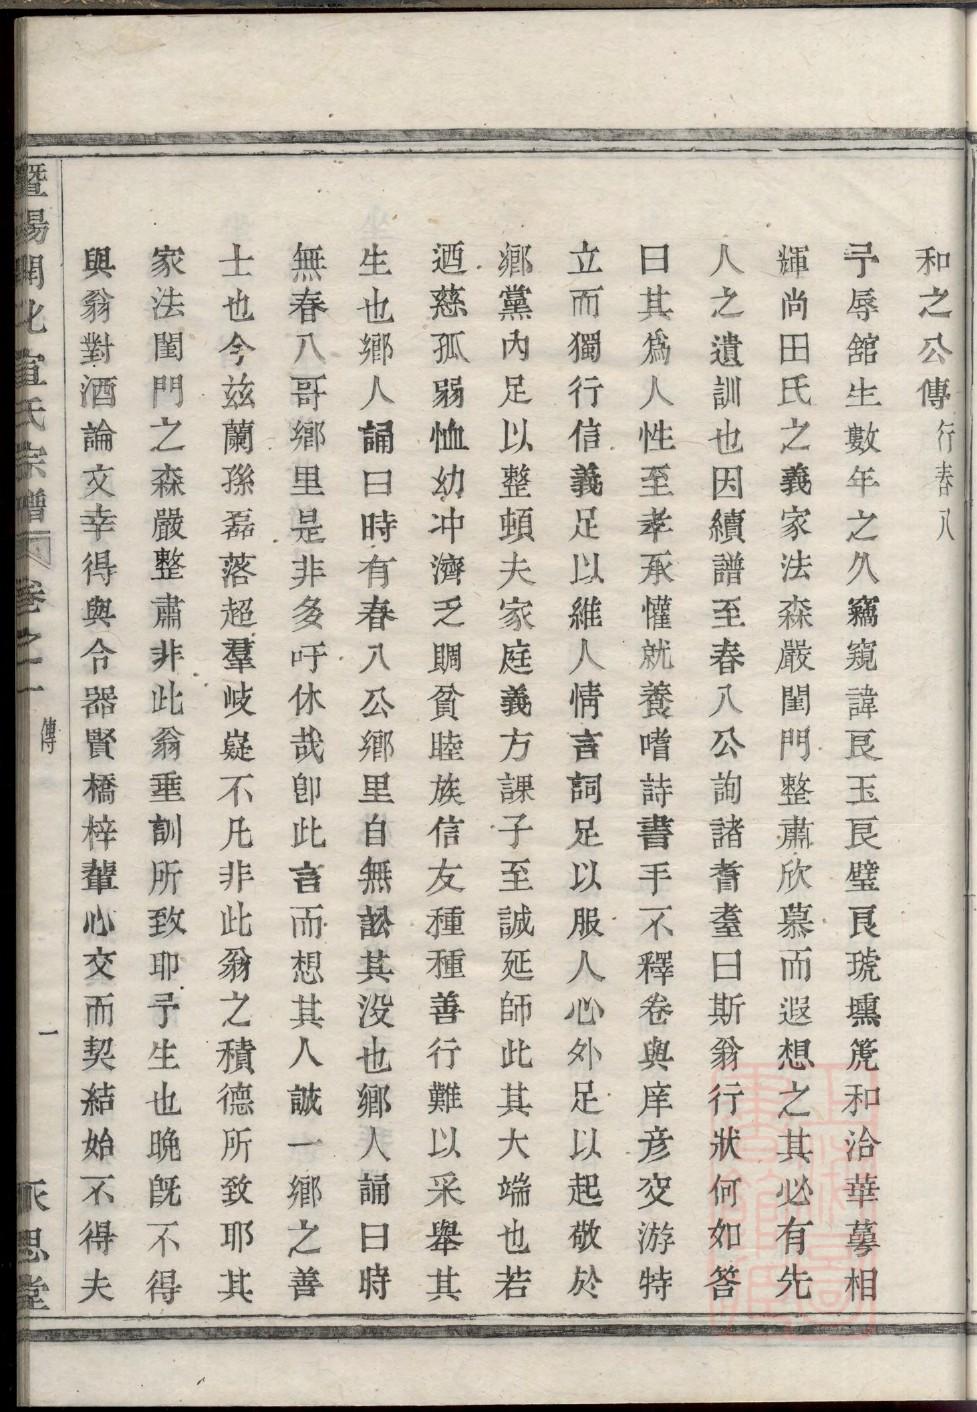 和之公傳行春八
予辱舘生數年之久竊窺諱良玉良璧良琥壎箎和洽華萼相
輝尚田氏之義家法森嚴閨門整肅欣慕而遐想之其必有先
人之遺訓也因續譜至春八公詢諸耆耋曰斯翁行狀何如答
曰其爲人性至孝承懽就養嗜詩書手不釋卷與庠彦交游特
立而獨行信義足以維人情言詞足以服人心外足以起敬於
鄉黨內足以整頓夫家庭義方課子至誠延師此其大端也若
迺慈孤弱恤幼冲濟乏賙貧睦族信友種種善行難以采舉其
生也鄉人誦曰時有春八公鄉里自無訟其没也鄉人誦曰時
無春八哥鄉里是非多吁休哉卽此言而想其人誠一鄉之善
士也今兹蘭孫磊落超羣岐嶷不凡非此翁之積德所致耶其
家法閨門之森嚴整肅非此翁垂訓所致耶予生也晚旣不得
與翁對酒論文幸得與令器賢橋梓輩心交而契結始不得夫
暨陽開化宣氏宗譜 卷之一 傳 一 永思堂